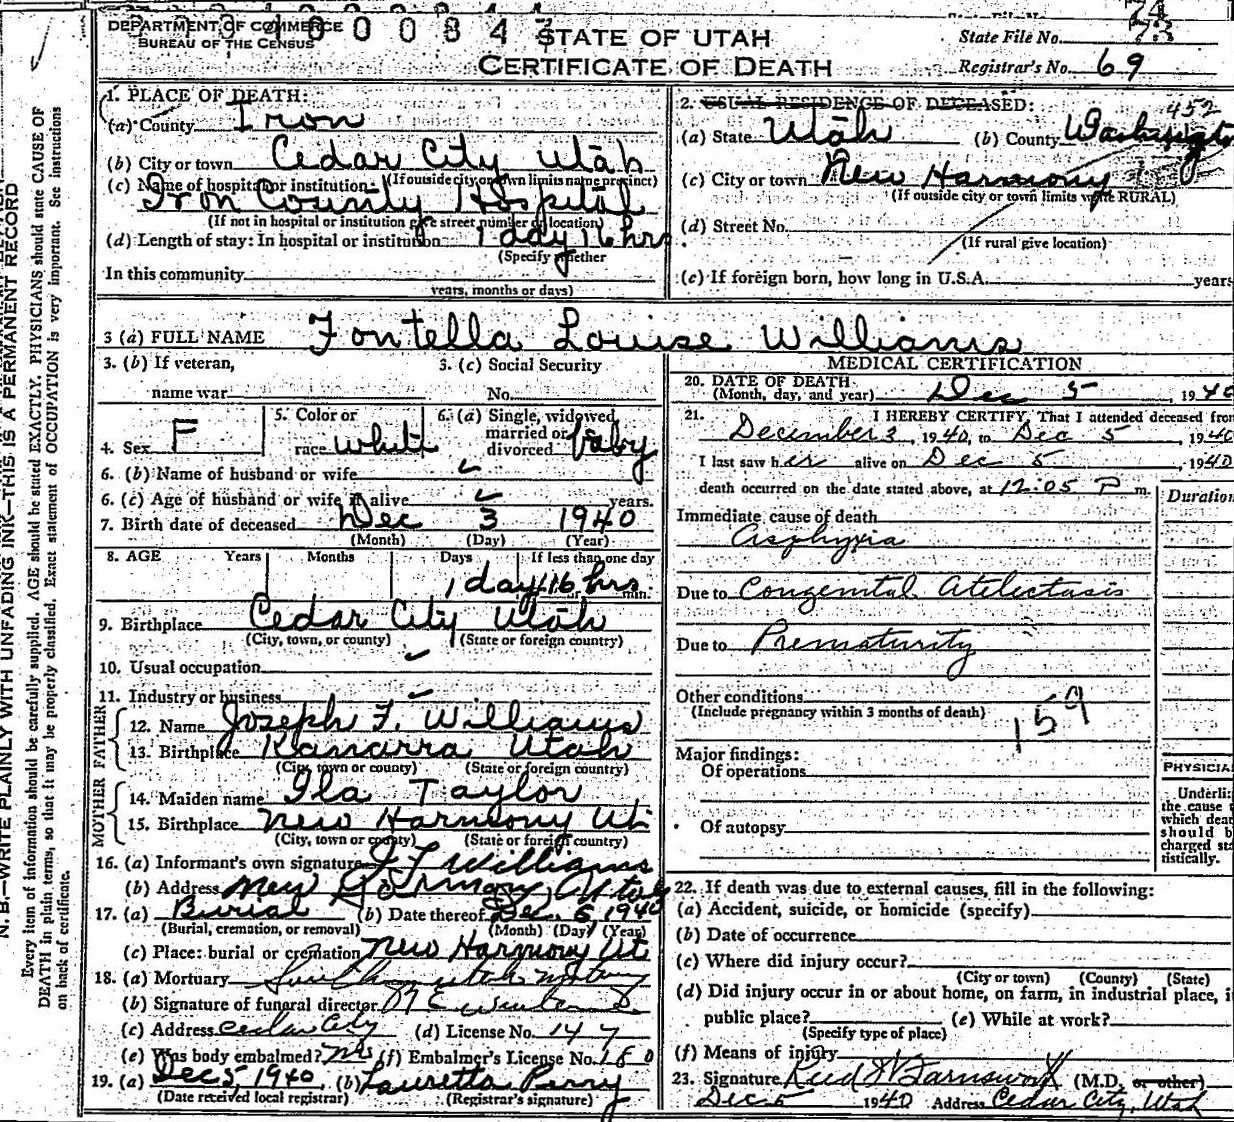 DEPARTMENT OF COMMERCE
BUREAU OF THE CENSUS
STATE OF UTAH
CERTIFICATE OF DEATH
74
State File No. 73
Registrar's No. 69
N. B.—WRITE PLAINLY WITH UNFADING INK—THIS IS A PERMANENT RECORD
Every item of information should be carefully supplied. AGE should be stated EXACTLY. PHYSICIANS should state CAUSE OF
DEATH in plain terms, so that it may be properly classified. Exact statement of OCCUPATION is very important. See instructions
on back of certificate.
1. PLACE OF DEATH:
(a) County Iron
(b) City or town Cedar City Utah
(If outside city or town limits name precinct)
(c) Name of hospital or institution
Iron County Hospital
(If not in hospital or institution give street number or location)
(d) Length of stay: In hospital or institution 1 day 16 hrs.
(Specify whether
In this community
years, months or days)
2. USUAL RESIDENCE OF DECEASED:
452
(a) State Utah (b) County Washington
(c) City or town New Harmony
(If outside city or town limits write RURAL)
(d) Street No.
(If rural give location)
(e) If foreign born, how long in U.S.A. years
3 (a) FULL NAME Fontella Louise Williams
3. (b) If veteran,
name war
3. (c) Social Security
No.
4. Sex F
5. Color or
race White
6. (a) Single, widowed
married or
divorced baby
6. (b) Name of husband or wife
6. (c) Age of husband or wife if alive years.
7. Birth date of deceased Dec 3 1940
(Month) (Day) (Year)
8. AGE Years Months Days If less than one day
1 day 16 hrs. min.
9. Birthplace Cedar City Utah
(City, town, or county) (State or foreign country)
10. Usual occupation
11. Industry or business
FATHER
12. Name Joseph F. Williams
13. Birthplace Kanarra Utah
(City, town or county) (State or foreign country)
MOTHER
14. Maiden name Ila Taylor
15. Birthplace New Harmony Ut
(City, town or county) (State or foreign country)
16. (a) Informant's own signature J F Williams
(b) Address New Harmony Utah
17. (a) Burial (b) Date thereof Dec. 6 1940
(Burial, cremation, or removal) (Month) (Day) (Year)
(c) Place: burial or cremation New Harmony Ut
18. (a) Mortuary Southern Utah Mortuary
(b) Signature of funeral director
(c) Address Cedar City (d) License No. 147
(e) Was body embalmed? (f) Embalmer's License No.
19. (a) Dec 5, 1940 (b) Lauretta Perry
(Date received local registrar) (Registrar's signature)
MEDICAL CERTIFICATION
20. DATE OF DEATH
(Month, day, and year) Dec 5, 1940
21. I HEREBY CERTIFY, That I attended deceased from
December 3, 1940, to Dec 5, 1940
I last saw her alive on Dec 5, 1940
death occurred on the date stated above, at 12:05 P m.
Duration
Immediate cause of death
Asphyxia
Due to Congenital Atelectasis
Due to Prematurity
Other conditions
(Include pregnancy within 3 months of death)
159
Major findings:
Of operations
Of autopsy
PHYSICIA
Underli
the cause t
which deat
should b
charged sta
tistically.
22. If death was due to external causes, fill in the following:
(a) Accident, suicide, or homicide (specify)
(b) Date of occurrence
(c) Where did injury occur?
(City or town) (County) (State)
(d) Did injury occur in or about home, on farm, in industrial place, i
public place? (e) While at work?
(Specify type of place)
(f) Means of injury
23. Signature Reed W Farnsworth (M.D. or other)
Dec 5 1940 Address Cedar City, Utah